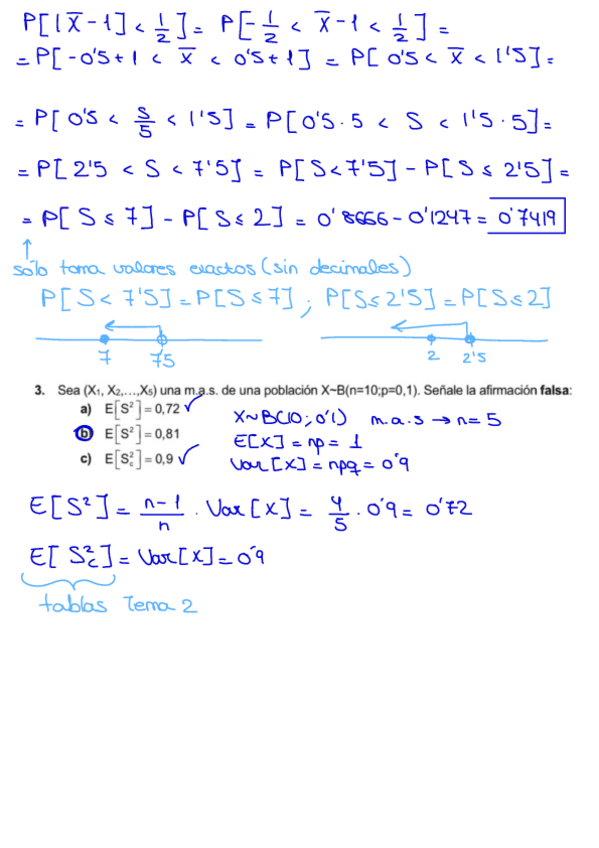 P[|X̄ - 1| < 1/2] = P[-1/2 < X̄ - 1 < 1/2] =
= P[-0'5 + 1 < X̄ < 0'5 + 1] = P[0'5 < X̄ < 1'5] =
= P[0'5 < S/5 < 1'5] = P[0'5 · 5 < S < 1'5 · 5] =
= P[2'5 < S < 7'5] = P[S < 7'5] - P[S ≤ 2'5] =
= P[S ≤ 7] - P[S ≤ 2] = 0'8666 - 0'1247 = 0'7419
↑
sólo toma valores exactos (sin decimales)
P[S < 7'5] = P[S ≤ 7] ; P[S ≤ 2'5] = P[S ≤ 2]
7 75 2 2'5
3. Sea (X₁, X₂,...,X₅) una m.a.s. de una población X~B(n=10;p=0,1). Señale la afirmación falsa:
a) E[S²] = 0,72 ✓
b) E[S²] = 0,81
c) E[S²c] = 0,9 ✓
X~B(10; 0'1) m.a.s → n = 5
E[X] = np = 1
Var[X] = npq = 0'9
E[S²] = n-1/n · Var[X] = 4/5 · 0'9 = 0'72
E[S²c] = Var[X] = 0'9
tablas Tema 2